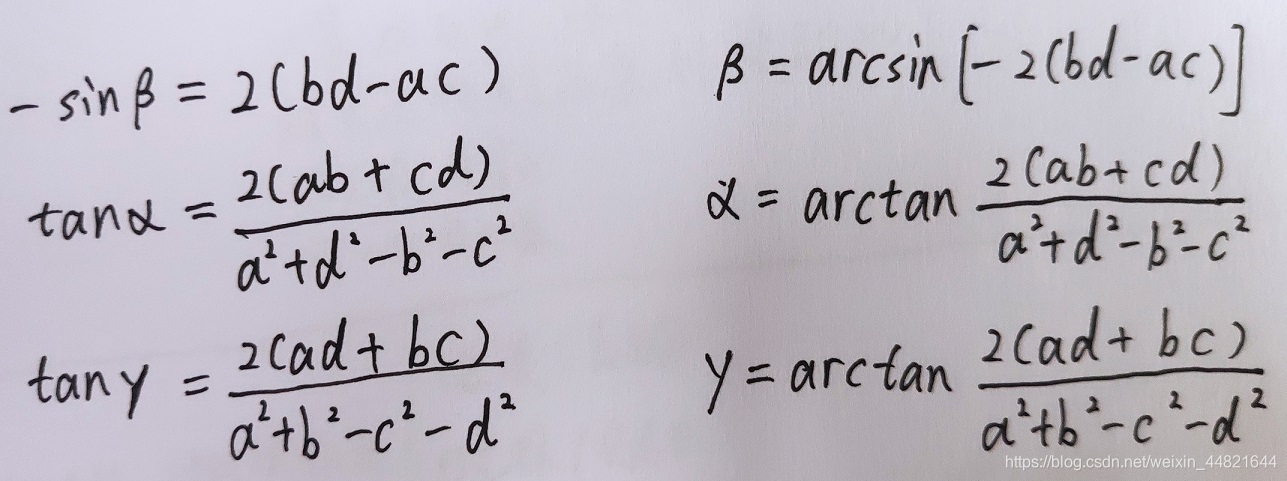 -sinβ = 2(bd-ac) β = arcsin[-2(bd-ac)]
tanα = 2(ab+cd) / (a²+d²-b²-c²) α = arctan 2(ab+cd) / (a²+d²-b²-c²)
tanγ = 2(ad+bc) / (a²+b²-c²-d²) γ = arctan 2(ad+bc) / (a²+b²-c²-d²)
https://blog.csdn.net/weixin_44821644